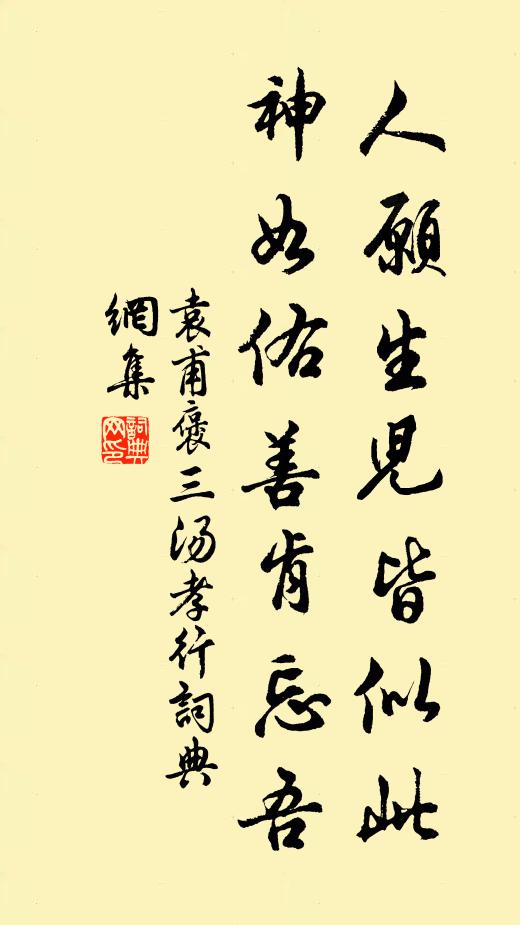 人願生児皆似此
神如佑善肯忘吾
袁甫褒三湯孝行詞典
網集
詞典
网印